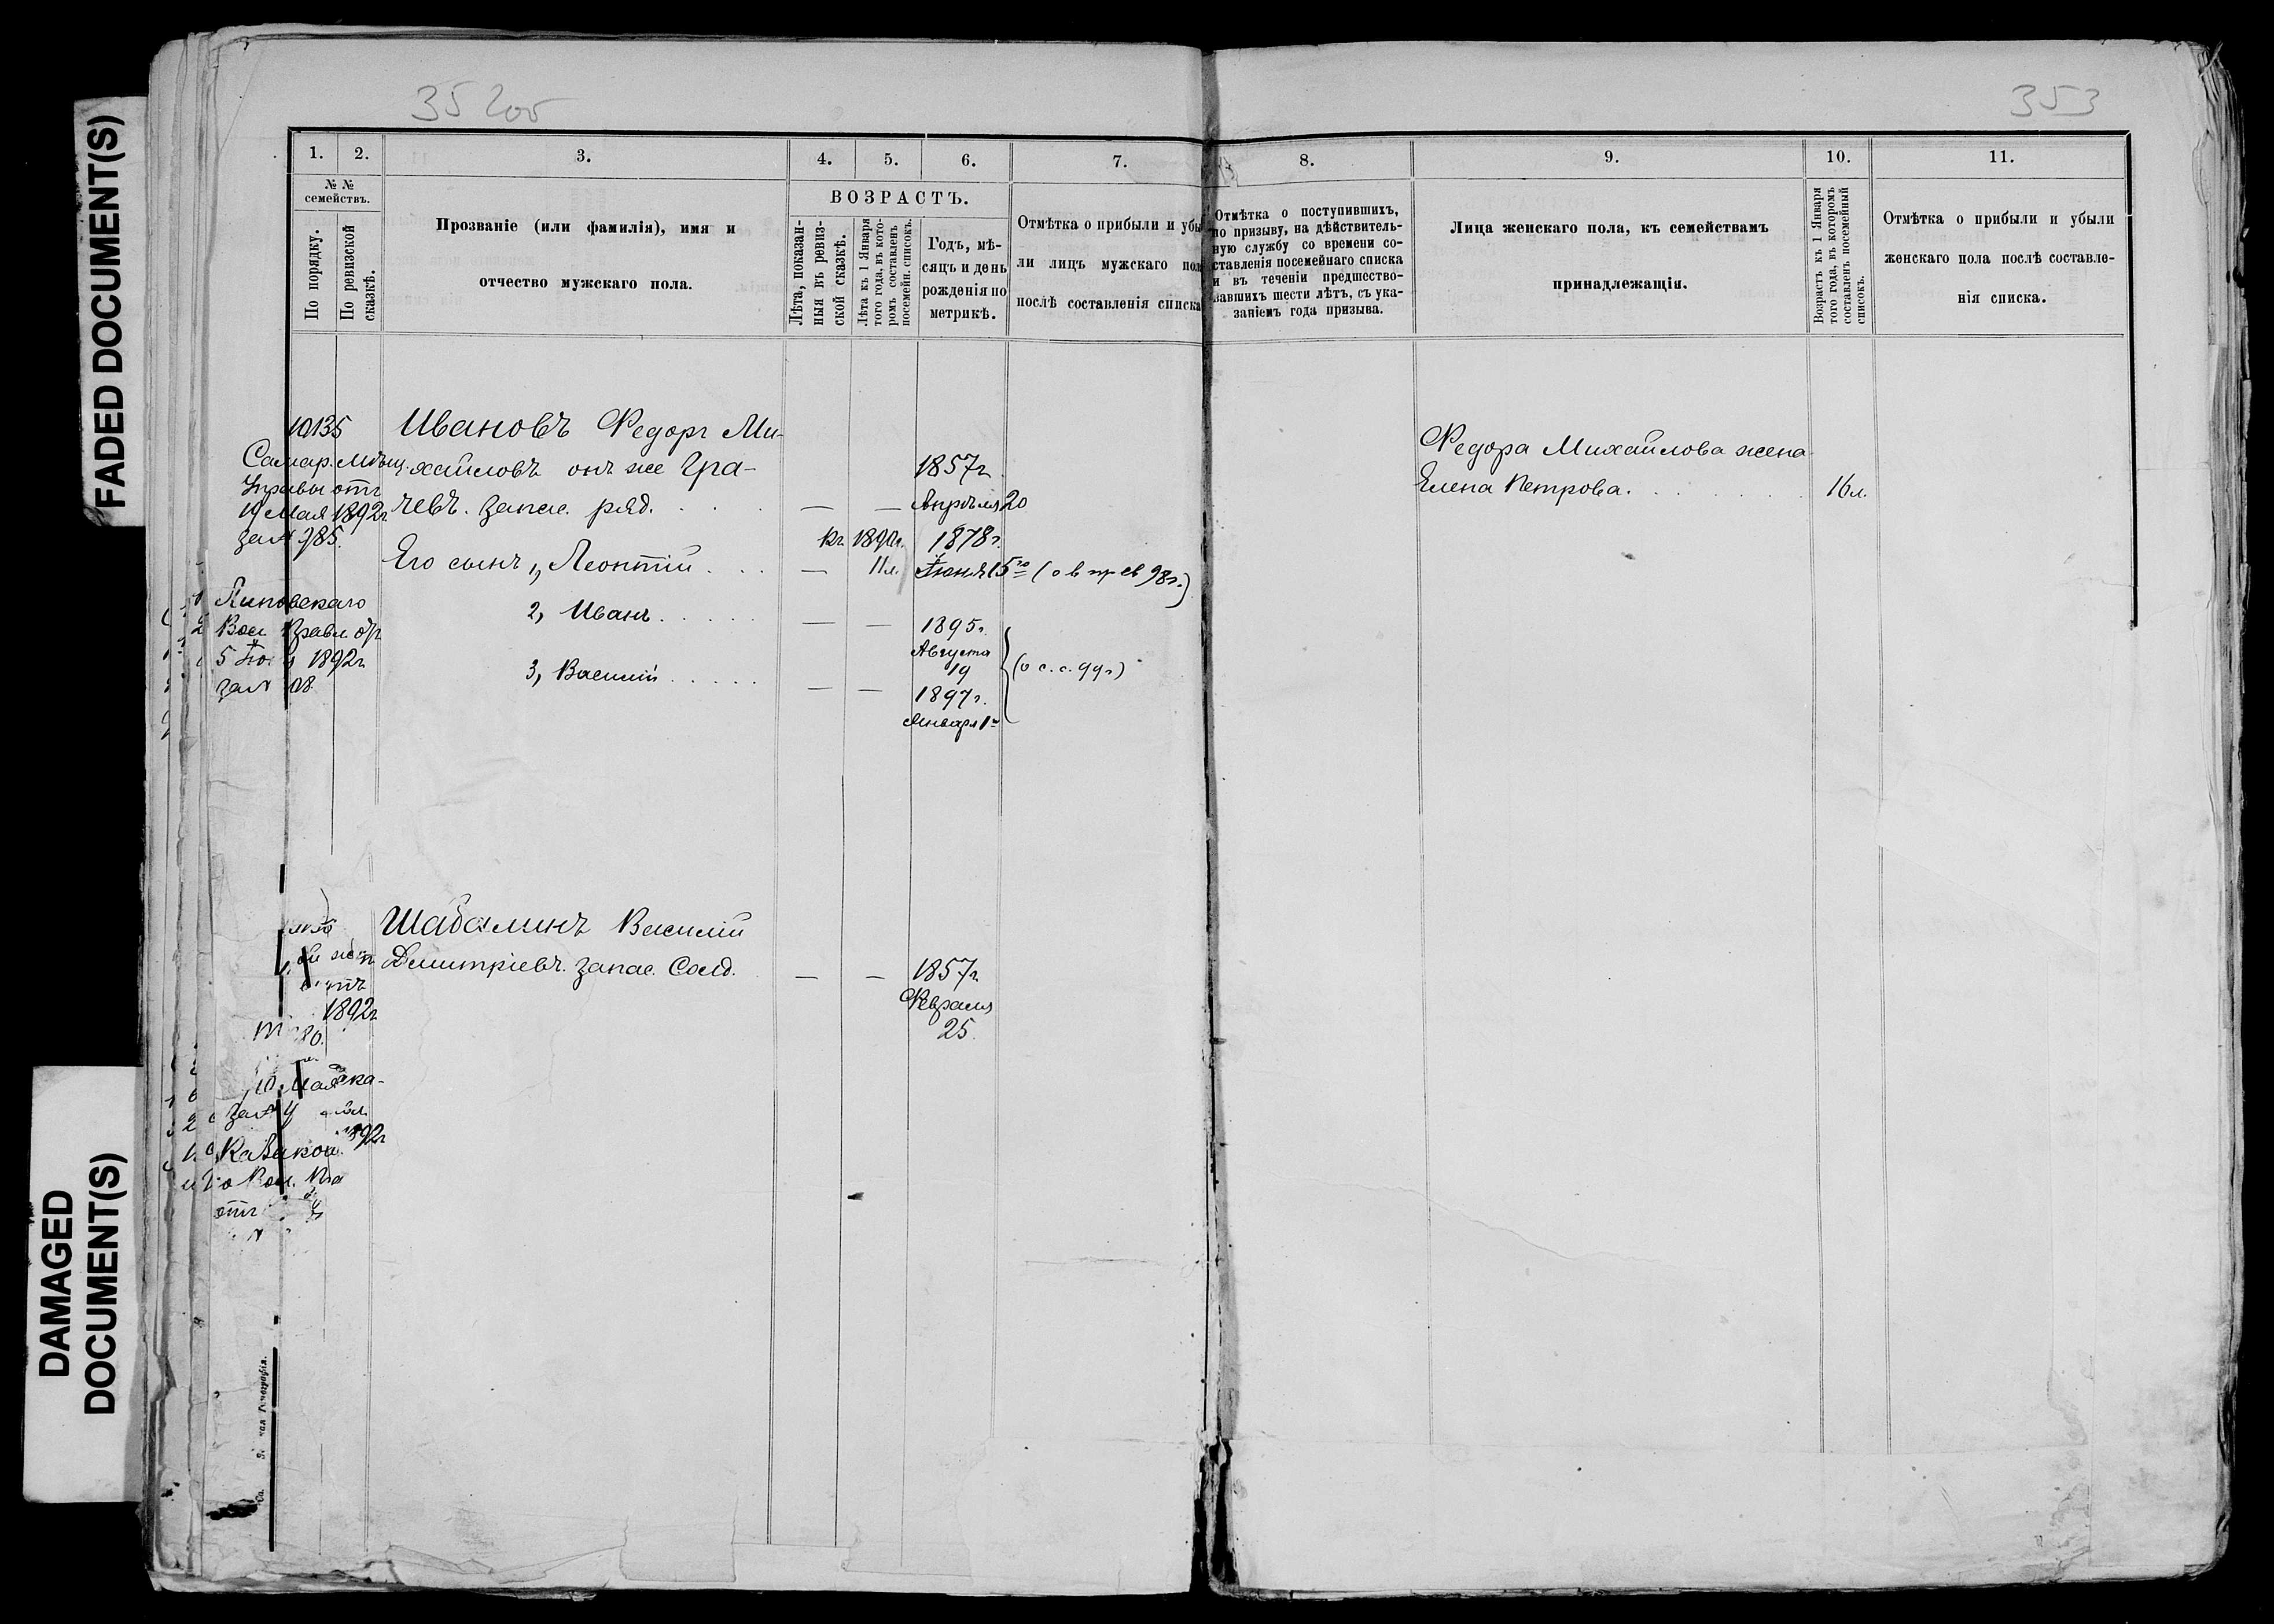 FADED DOCUMENT(S)
DAMAGED
DOCUMENT(S)
35 2об
353
1.
2.
3.
4.
5.
6.
7.
8.
9.
10.
11.
№ №
семействъ.
По порядку.
По ревизской
сказкѣ.
Прозваніе (или фамилія), имя и
отчество мужскаго пола.
ВОЗРАСТЪ.
Лѣта, показан-
ныя въ ревиз-
ской сказкѣ.
Лѣта къ 1 Января
того года, въ кото-
ромъ составленъ
посемейн. списокъ.
Годъ, мѣ-
сяцъ и день
рожденія по
метрикѣ.
Отмѣтка о прибыли и убы
ли лицъ мужскаго пол
послѣ составленія списка
Отмѣтка о поступившихъ,
по призыву, на дѣйствитель-
ную службу со времени со-
ставленія посемейнаго списка
и въ теченіи предшество-
вавшихъ шести лѣтъ, съ ука-
заніемъ года призыва.
Лица женскаго пола, къ семействамъ
принадлежащія.
Возрастъ къ 1 Января
того года, въ которомъ
составленъ посемейный
списокъ.
Отмѣтка о прибыли и убыли
женскаго пола послѣ составле-
нія списка.
10135
Самар. Мѣщ.
Управы отъ
19 Мая 1892г
за № 985.
Липовскаго
Вол. Правл. отъ
5 1892г
за №
Ивановъ Федоръ Ми-
хайловъ онъ же Гра-
чевъ. запас. ряд.
1857г.
Апрѣля 20
Его сынъ 1, Леонтій
къ 1890г.
11л.
1878г.
Іюня 15го
98г.)
2, Иванъ
1895г.
Августа
19
3, Василій
1897г.
Января 1го
(о с. с. 99г)
Федора Михайлова жена
Елена Петрова.
16л.
Шабалинъ Василій
Дмитріевъ. запас. Солд.
1857г.
Февраля
25.
1892г
10 Мая
за №
1892г
отъ